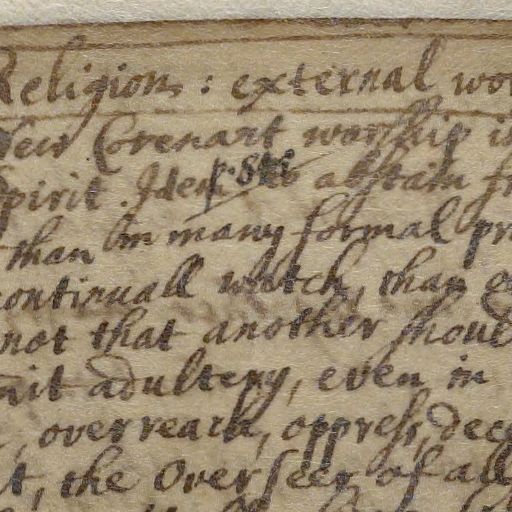 Religion, : external wor
New Covenant worship i
spirit. Idem p. 810 abstain fr
than in many formal pr
continuall watch, than e
not that another shoul
mit adultery, even in
, overreach, oppress, dece
t, the Overseer of all